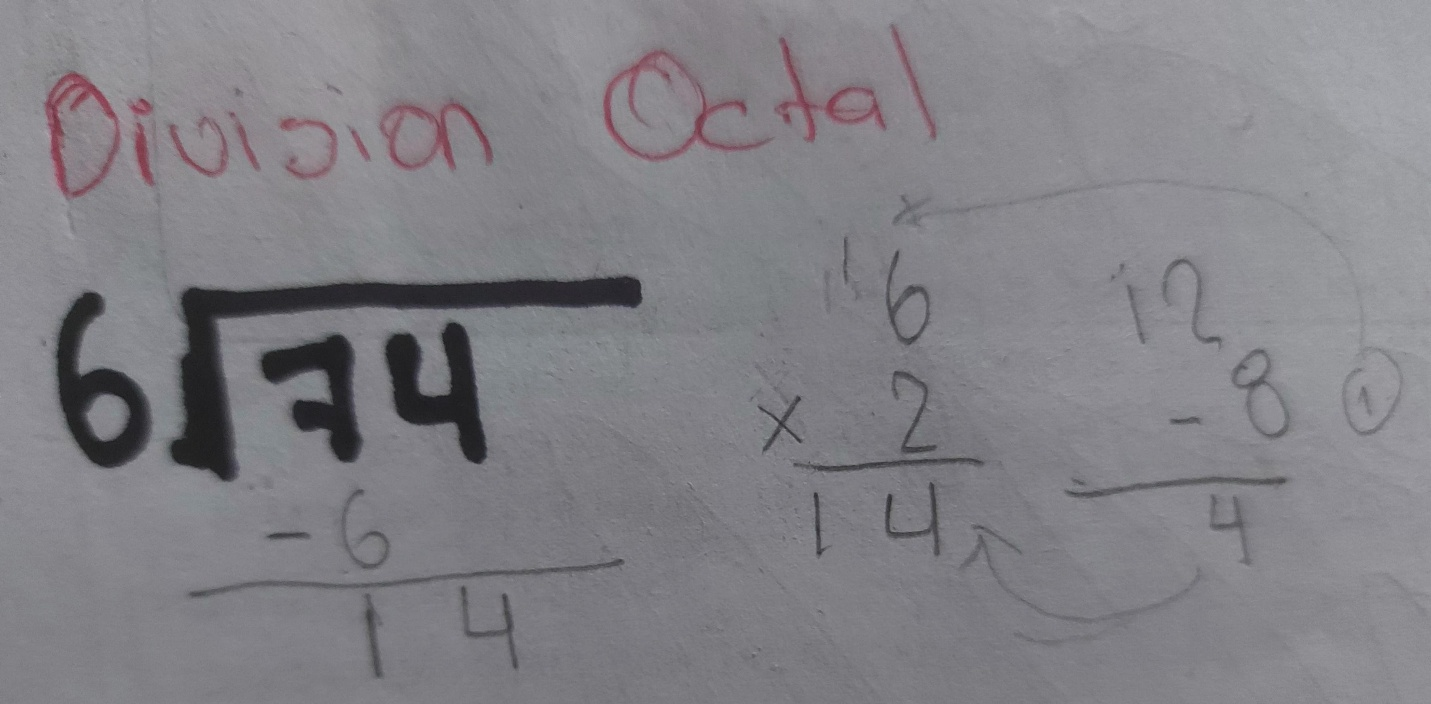 Division Octal
6 74
- 6
1 4
1 6
x 2
1 4
12
- 8 1
4